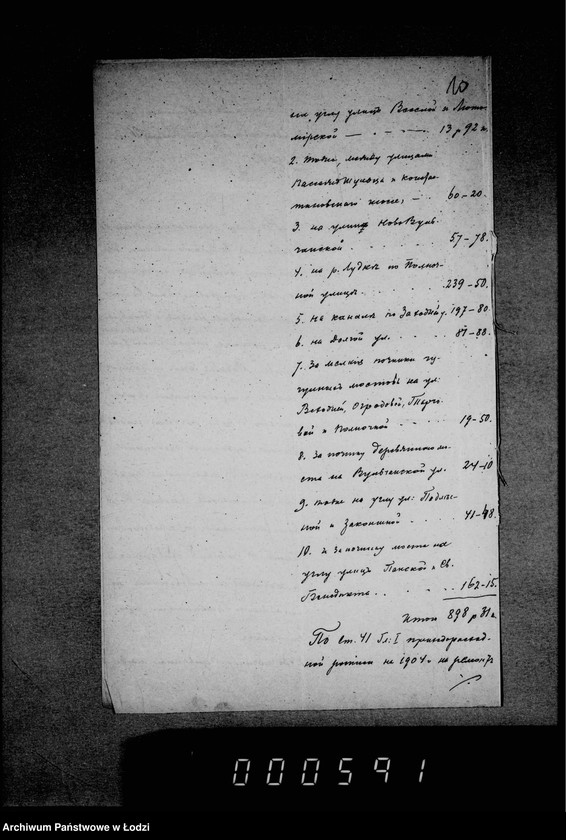 10
на углу улицъ Веселой и Люто-
мірской — . — . — 13 р 92 к.
2. тоже, между улицами
и Конста-
шоссе, — . 60-20.
3. на улицѣ Ново Вуль-
чанской . . . . . 57-78.
4. на р. Лудкѣ по Полноч-
ной улицѣ . . . . 239-50.
5. На каналѣ по Заходней у. 197-80
6. на Долгой ул. . . . 81-88.
7. За мелкія починки чу-
гунныхъ мостовъ на ул:
Огродовой, Торго-
вой и Полночной . . . 19-50.
8. За починку деревяннаго мо-
ста на Вульчанской ул. 24-10
9. тоже на углу ул:
ной и . . . . 41-48.
10. и за починку моста на
углу улицъ Панской и Св.
Бенедикта . . . . . 162-15.
Итого 898 р 31 к.
По ст. 41 Гл: I
ной росписи на 1904 г. на ремонтъ
./.
000591
Archiwum Państwowe w Łodzi